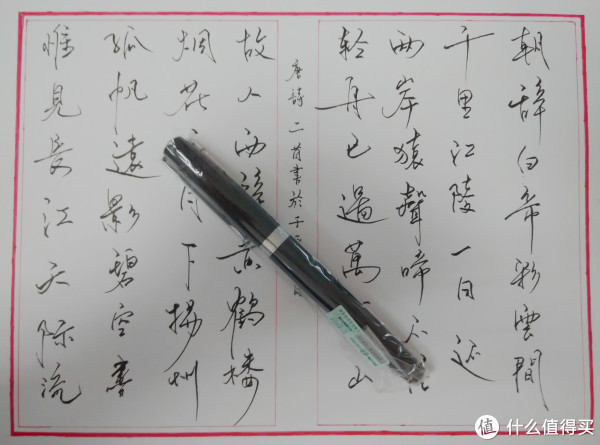 朝辞白帝彩雲間
千里江陵一日还
两岸猿聲啼不
輕舟已過萬山
唐詩二首書於千
故人西辞黄鶴楼
烟花月下揚州
孤帆遠影碧空盡
惟見長江天际流
值 什么值得买